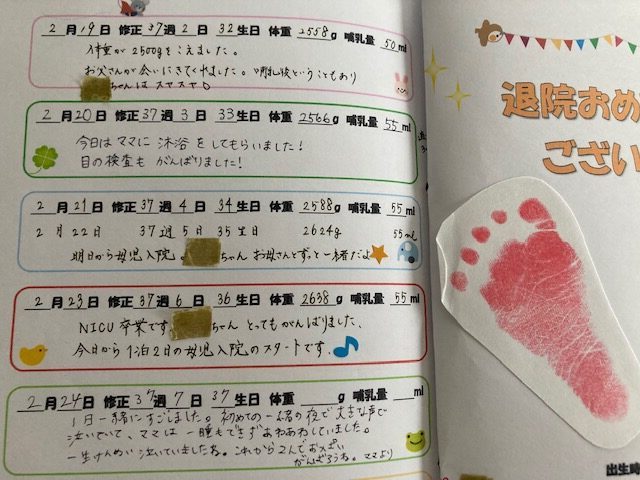 2月19日 修正37週2日 32生日 体重2558g 哺乳量50ml
体重が2500gをこえました。
お父さんが会いにきてくれました。哺乳後ということもあり
ちゃんはスヤスヤ。
2月20日 修正37週3日 33生日 体重2566g 哺乳量55ml
今日はママに沐浴をしてもらいました!
目の検査もがんばりました!
2月21日 修正37週4日 34生日 体重2588g 哺乳量55ml
2月22日 37週5日 35生日 2624g 55ml
明日から母児入院。ちゃん お母さんとずっと一緒だよ
2月23日 修正37週6日 36生日 体重2638g 哺乳量55ml
NICU卒業です。ちゃんとってもがんばりました、
今日から1泊2日の母児入院のスタートです。
2月24日 修正37週7日 37生日 体重 g 哺乳量 ml
1日一緒にすごしました。初めての一緒の夜で大きな声で
泣いていて、ママは一睡もできずよわよわしていました。
一生けんめい泣いていましたね。これから2人で
がんばろうね。ママより
退院おめ
ござい
出生時